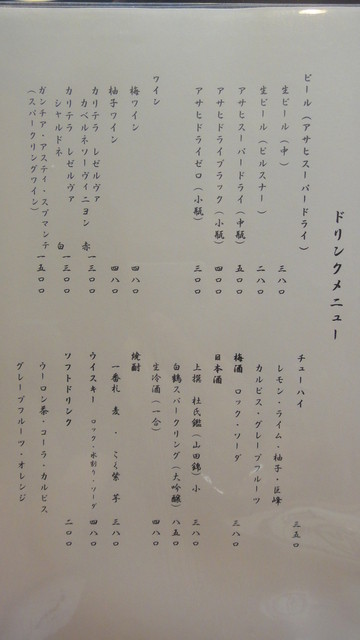 ドリンクメニュー
ビール（アサヒスーパードライ）
生ビール（中） 三八〇
生ビール（ピルスナー） 二八〇
アサヒスーパードライ（中瓶） 五〇〇
アサヒドライブラック（小瓶） 四〇〇
アサヒドライゼロ（小瓶） 三〇〇
ワイン
梅ワイン 四八〇
柚子ワイン 四八〇
カリテラ レゼルヴァ
カベルネソーヴィニヨン 赤 一三〇〇
カリテラ レゼルヴァ
シャルドネ 白 一三〇〇
ガンチア・アスティ・スプマンテ 一五〇〇
（スパークリングワイン）
チューハイ 三五〇
レモン・ライム・柚子・巨峰
カルピス・グレープフルーツ
梅酒 ロック・ソーダ 三八〇
日本酒
上撰 杜氏鑑（山田錦）小 三八〇
白鶴スパークリング（大吟醸） 八五〇
生冷酒（一合） 四八〇
焼酎
一番札 麦 ・ こく紫 芋 三八〇
ウイスキー ロック・水割り・ソーダ 四八〇
ソフトドリンク 二〇〇
ウーロン茶・コーラ・カルピス
グレープフルーツ・オレンジ